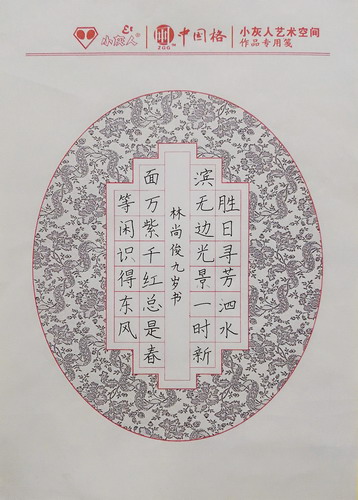 小灰人
ZGG
中国格
小灰人艺术空间
作品专用笺
胜日寻芳泗水
滨无边光景一时新
等闲识得东风
面万紫千红总是春
林尚俊九岁书